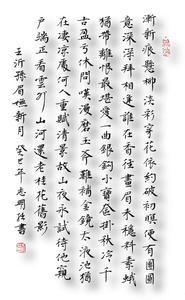 漸新痕懸柳淡彩穿花依約破初暝便有團圓
意深深拜相逢誰在香徑畫眉未穩料素娥
猶帶離恨最堪愛一曲銀鉤小寶奩掛秋冷千
古盈虧休問嘆漫磨玉斧難補金鏡太液池猶
在淒涼處何人重賦清景故山夜永試待他窺
戶端正看雲外山河還老桂花舊影
王沂孫眉嫵新月 癸巳年志明書